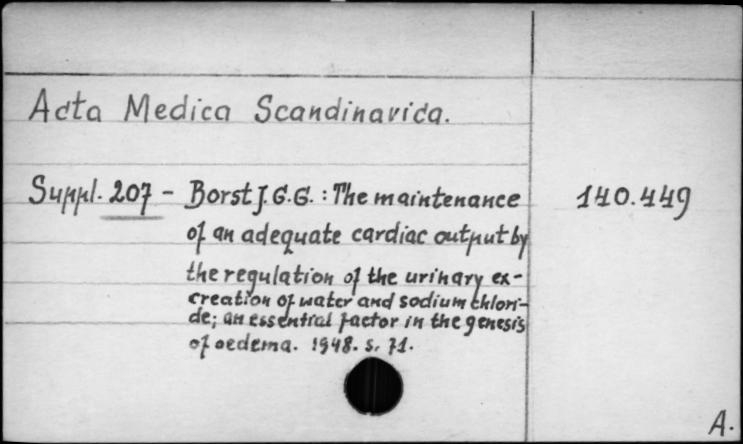 Acta Medica Scandinavica.
Suppl. 207 - Borst J.G.G. : The maintenance 140.449
of an adequate cardiac output by
the regulation of the urinary ex-
creation of water and sodium chlori-
de; an essential factor in the genesis
of oedema. 1948. s. 71.
A.